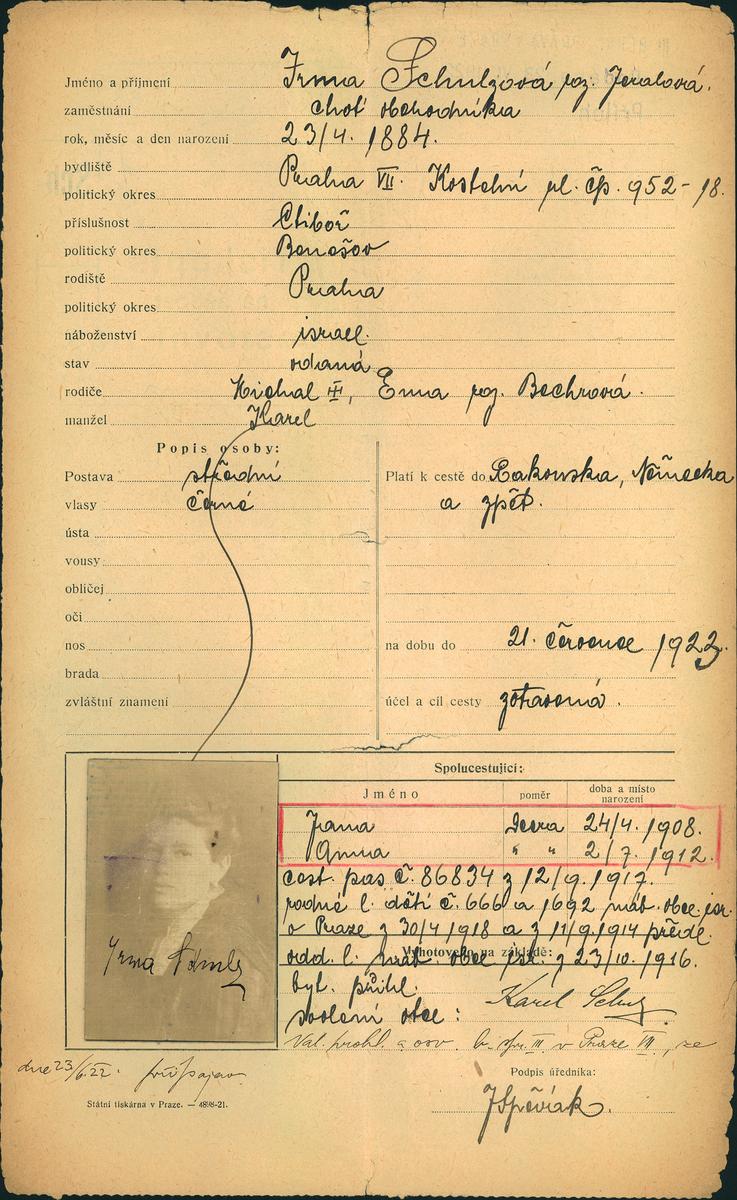 Jméno a příjmení Irma Schulzová roz. Jeralová.
zaměstnání choť obchodníka
rok, měsíc a den narození 23/4. 1884.
bydliště Praha VII. Kostelní ul. čp. 952-18.
politický okres
příslušnost Ctiboř
politický okres Benešov
rodiště Praha
politický okres
náboženství israel.
stav vdaná
rodiče Michal, Ema roz. Bechrová.
manžel Karel
Popis osoby:
Postava střední
vlasy černé
ústa
vousy
obličej
oči
nos
brada
zvláštní znamení
Platí k cestě do Rakouska, Německa
a zpět.
na dobu do 21. července 1923.
účel a cíl cesty zotavená.
Spolucestující:
Jméno poměr doba a místo
narození
Hana dcera 24/4. 1908.
Anna " " 2/7. 1912.
cest. pas č. 86834 z 12/9. 1917.
rodné l. dětí č. 666 a 1692 náb. obce isr.
v Praze z 30/4 1918 a z 11/9. 1914 předl.
Vyhotoveno na základě:
odd. l. náb. obce isr. z 23/10. 1916.
byt. přihl.
svolení otce: Karel Schulz
Irma Schulz
v Praze VII, ze
dne 23/6. 22.
Podpis úředníka:
JSpěvák
Státní tiskárna v Praze. — 4898-21.